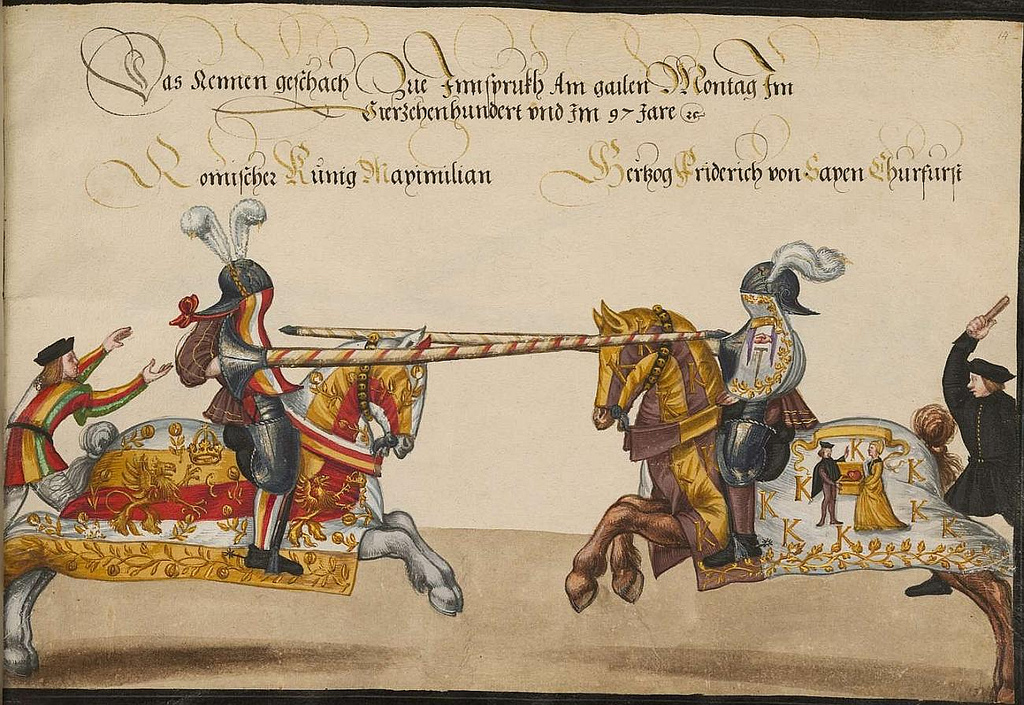 Das Rennen geschach Zue Innsprukh Am gailen Montag Im
Vierzehenhundert vnd Im 97 Jare ⁊c
Romischer Kunig Maximilian
Hertzog Friderich von Saxen Churfurst
K K K K K K K K K
14